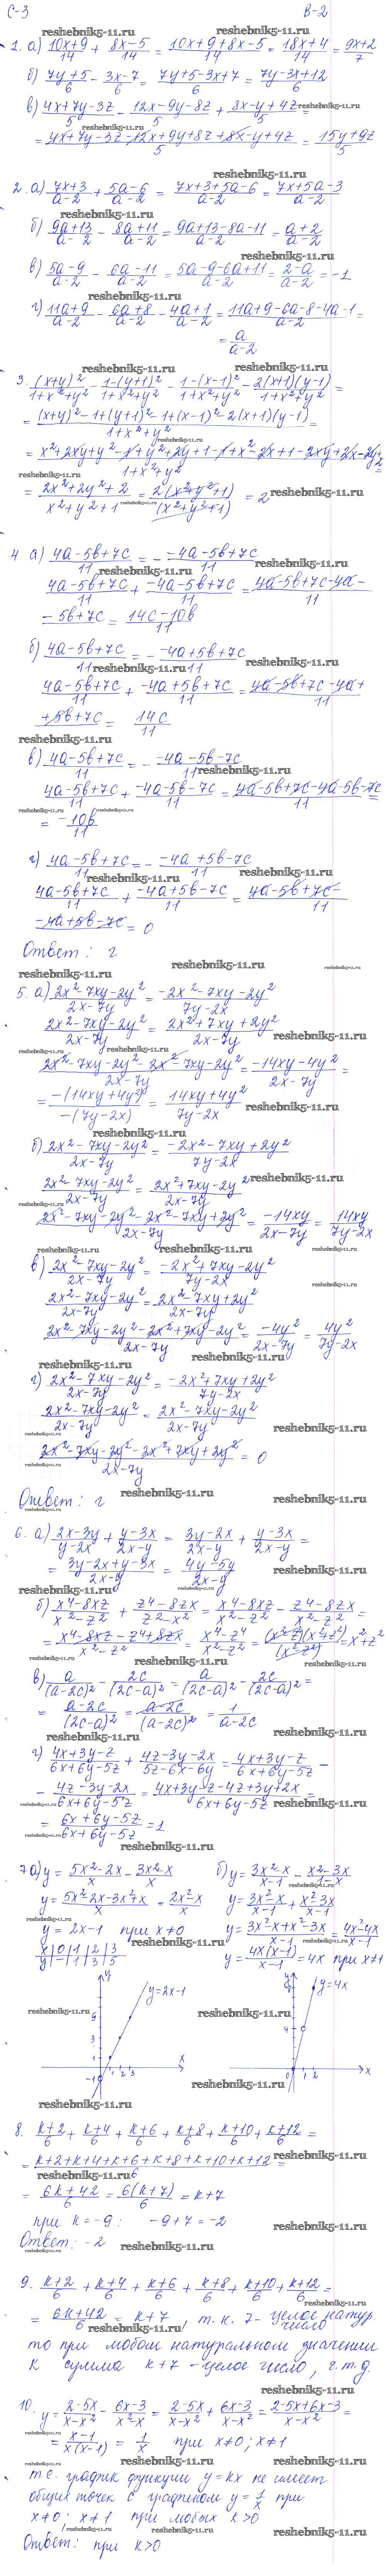 С-3 В-2
1. а) (10x+9)/14 + (8x-5)/14 = (10x+9+8x-5)/14 = (18x+4)/14 = (9x+2)/7
б) (7y+5)/6 - (3x-7)/6 = (7y+5-3x+7)/6 = (7y-3x+12)/6
в) (4x+7y-3z)/5 - (12x-9y-8z)/5 + (8x-y+4z)/5 =
= (4x+7y-3z-12x+9y+8z+8x-y+4z)/5 = (15y+9z)/5
2. а) (7x+3)/(a-2) + (5a-6)/(a-2) = (7x+3+5a-6)/(a-2) = (7x+5a-3)/(a-2)
б) (9a+13)/(a-2) - (8a+11)/(a-2) = (9a+13-8a-11)/(a-2) = (a+2)/(a-2)
в) (5a-9)/(a-2) - (6a-11)/(a-2) = (5a-9-6a+11)/(a-2) = (2-a)/(a-2) = -1
г) (11a+9)/(a-2) - (6a+8)/(a-2) - (4a+1)/(a-2) = (11a+9-6a-8-4a-1)/(a-2) =
= a/(a-2)
3. (x+y)²/(1+x²+y²) - (1-(y+1)²)/(1+x²+y²) - (1-(x-1)²)/(1+x²+y²) - 2(x+1)(y-1)/(1+x²+y²) =
= ((x+y)²-1+(y+1)²-1+(x-1)²-2(x+1)(y-1))/(1+x²+y²) =
= (x²+2xy+y²-1+y²+2y+1-1+x²-2x+1-2xy+2x-2y+2)/(1+x²+y²) =
= (2x²+2y²+2)/(x²+y²+1) = 2(x²+y²+1)/(x²+y²+1) = 2
4 а) (4a-5b+7c)/11 = - (-4a-5b+7c)/11
(4a-5b+7c)/11 + (-4a-5b+7c)/11 = (4a-5b+7c-4a-
-5b+7c)/11 = (14c-10b)/11
б) (4a-5b+7c)/11 = - (-4a+5b+7c)/11
(4a-5b+7c)/11 + (-4a+5b+7c)/11 = (4a-5b+7c-4a+
+5b+7c)/11 = 14c/11
в) (4a-5b+7c)/11 = - (-4a-5b-7c)/11
(4a-5b+7c)/11 + (-4a-5b-7c)/11 = (4a-5b+7c-4a-5b-7c)/11 =
= -10b/11
г) (4a-5b+7c)/11 = - (-4a+5b-7c)/11
(4a-5b+7c)/11 + (-4a+5b-7c)/11 = (4a-5b+7c-
-4a+5b-7c)/11 = 0
Ответ: г
5. а) (2x²-7xy-2y²)/(2x-7y) = (-2x²-7xy-2y²)/(7y-2x)
(2x²-7xy-2y²)/(2x-7y) = (2x²+7xy+2y²)/(2x-7y)
(2x²-7xy-2y²-2x²-7xy-2y²)/(2x-7y) = (-14xy-4y²)/(2x-7y) =
= -(14xy+4y²)/-(7y-2x) = (14xy+4y²)/(7y-2x)
б) (2x²-7xy-2y²)/(2x-7y) = (-2x²-7xy+2y²)/(7y-2x)
(2x²-7xy-2y²)/(2x-7y) = (2x²+7xy-2y²)/(2x-7y)
(2x²-7xy-2y²-2x²-7xy+2y²)/(2x-7y) = -14xy/(2x-7y) = 14xy/(7y-2x)
в) (2x²-7xy-2y²)/(2x-7y) = (-2x²+7xy-2y²)/(7y-2x)
(2x²-7xy-2y²)/(2x-7y) = (2x²-7xy+2y²)/(2x-7y)
(2x²-7xy-2y²-2x²+7xy-2y²)/(2x-7y) = -4y²/(2x-7y) = 4y²/(7y-2x)
г) (2x²-7xy-2y²)/(2x-7y) = (-2x²+7xy+2y²)/(7y-2x)
(2x²-7xy-2y²)/(2x-7y) = (2x²-7xy-2y²)/(2x-7y)
(2x²-7xy-2y²-2x²+7xy+2y²)/(2x-7y) = 0
Ответ: г
6. а) (2x-3y)/(y-2x) + (y-3x)/(2x-y) = (3y-2x)/(2x-y) + (y-3x)/(2x-y) =
= (3y-2x+y-3x)/(2x-y) = (4y-5y)/(2x-y)
б) (x⁴-8xz)/(x²-z²) + (z⁴-8zx)/(z²-x²) = (x⁴-8xz)/(x²-z²) - (z⁴-8zx)/(x²-z²) =
= (x⁴-8xz-z⁴+8zx)/(x²-z²) = (x⁴-z⁴)/(x²-z²) = (x²-z²)(x²+z²)/(x²-z²) = x²+z²
в) a/(a-2c)² - 2c/(2c-a)² = a/(2c-a)² - 2c/(2c-a)² =
= (a-2c)/(2c-a)² = (a-2c)/(a-2c)² = 1/(a-2c)
г) (4x+3y-z)/(6x+6y-5z) + (4z-3y-2x)/(5z-6x-6y) = (4x+3y-z)/(6x+6y-5z) -
- (4z-3y-2x)/(6x+6y-5z) = (4x+3y-z-4z+3y+2x)/(6x+6y-5z) =
= (6x+6y-5z)/(6x+6y-5z) = 1
7а) y = (5x²-2x)/x - (3x²-x)/x б) y = (3x²-x)/(x-1) - (x²-3x)/(1-x)
y = (5x²-2x-3x²+x)/x = (2x²-x)/x y = (3x²-x)/(x-1) + (x²-3x)/(x-1)
y = 2x-1 при x≠0 y = (3x²-x+x²-3x)/(x-1) = (4x²-4x)/(x-1)
x|0|1|2|3 y = 4x(x-1)/(x-1) = 4x при x≠1
y|-1|1|3|5
y=2x-1 y=4x
8. (k+2)/6 + (k+4)/6 + (k+6)/6 + (k+8)/6 + (k+10)/6 + (k+12)/6 =
= (k+2+k+4+k+6+k+8+k+10+k+12)/6 =
= (6k+42)/6 = 6(k+7)/6 = k+7
при k=-9: -9+7=-2
Ответ: -2
9. (k+2)/6 + (k+4)/6 + (k+6)/6 + (k+8)/6 + (k+10)/6 + (k+12)/6 =
= (6k+42)/6 = k+7, т.к. 7- целое натур. число
то при любом натуральном значении
k сумма k+7 - целое число, ч.т.д.
10. y = (2-5x)/(x-x²) - (6x-3)/(x²-x) = (2-5x)/(x-x²) + (6x-3)/(x-x²) = (2-5x+6x-3)/(x-x²) =
= (x-1)/(x(x-1)) = 1/x при x≠0; x≠1
т.е. график функции y=kx не имеет
общих точек с графиком y=1/x при
x≠0; x≠1 при любых k>0
Ответ: при k>0
reshebnik5-11.ru